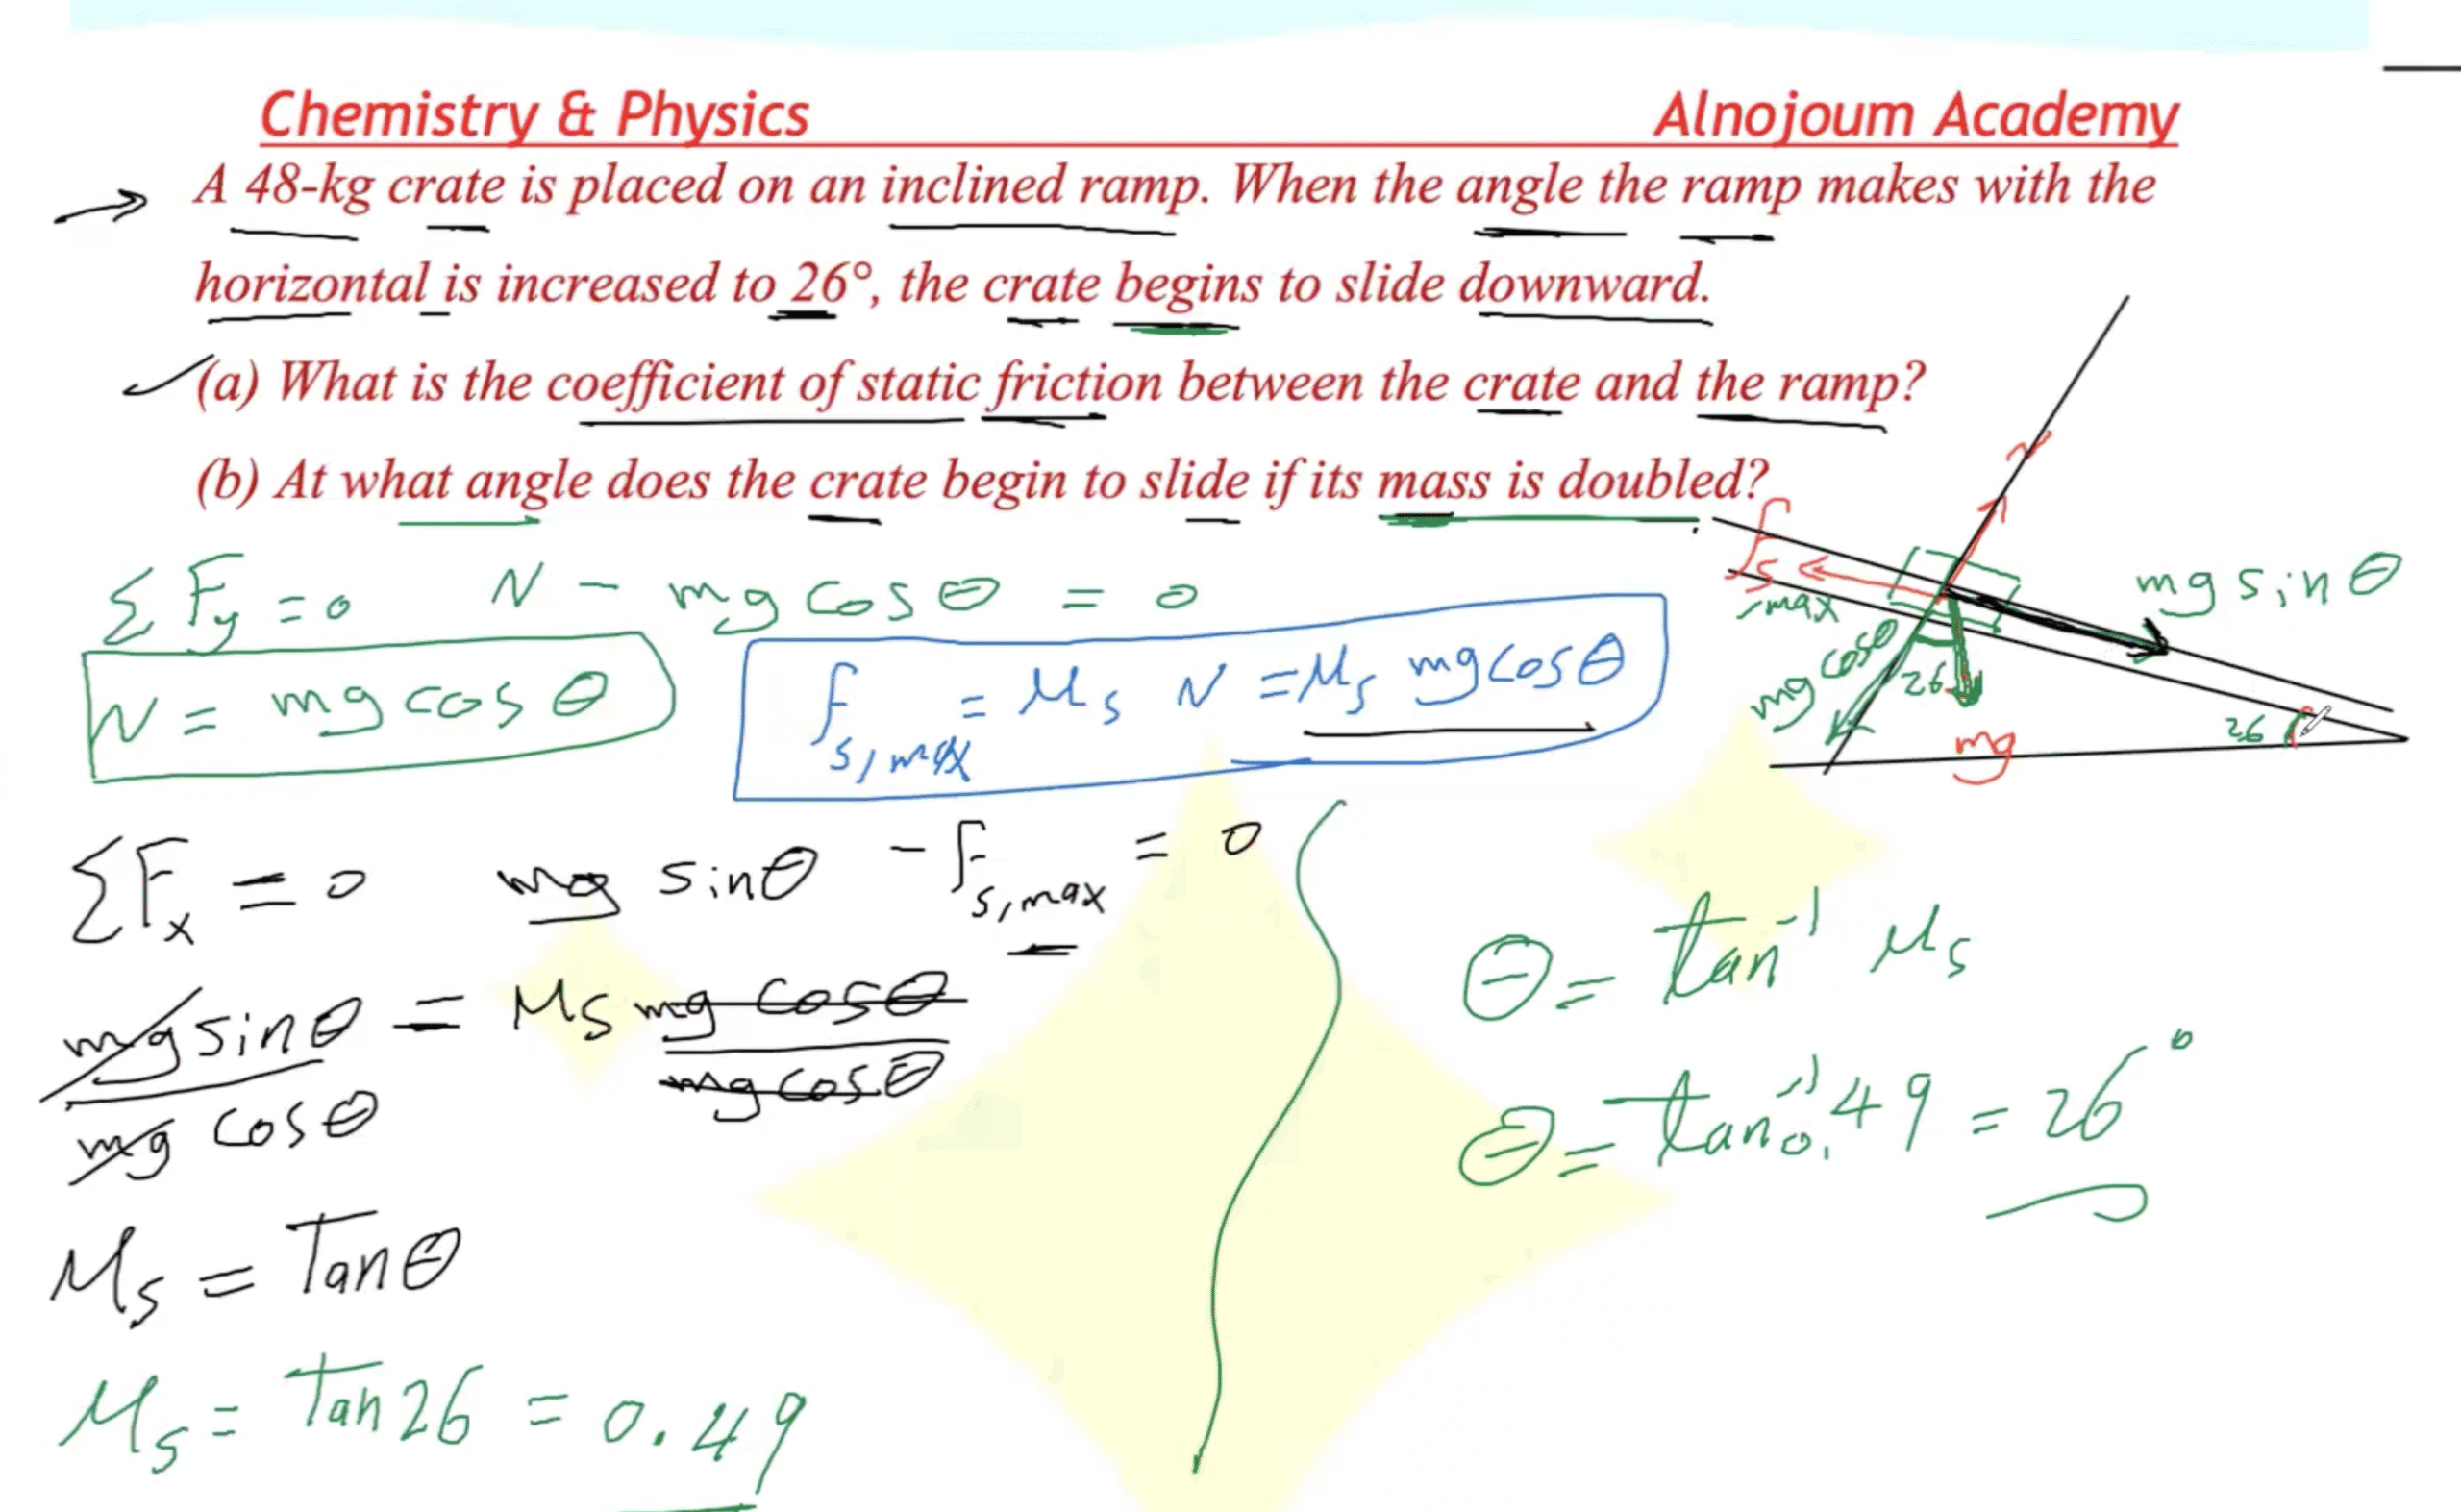 Chemistry & Physics Alnojoum Academy
A 48-kg crate is placed on an inclined ramp. When the angle the ramp makes with the
horizontal is increased to 26°, the crate begins to slide downward.
(a) What is the coefficient of static friction between the crate and the ramp?
(b) At what angle does the crate begin to slide if its mass is doubled?
ΣFy = 0 N - mg cosθ = 0
N = mg cosθ
Fs,max = μs N = μs mg cosθ
N
fs,max
mg sinθ
mg cosθ
26
mg
26
ΣFx = 0 mg sinθ - Fs,max = 0
mg sinθ = μs mg cosθ
mg cosθ mg cosθ
μs = Tanθ
μs = Tan 26 = 0.49
θ = tan⁻¹ μs
θ = tan⁻¹ 0.49 = 26°